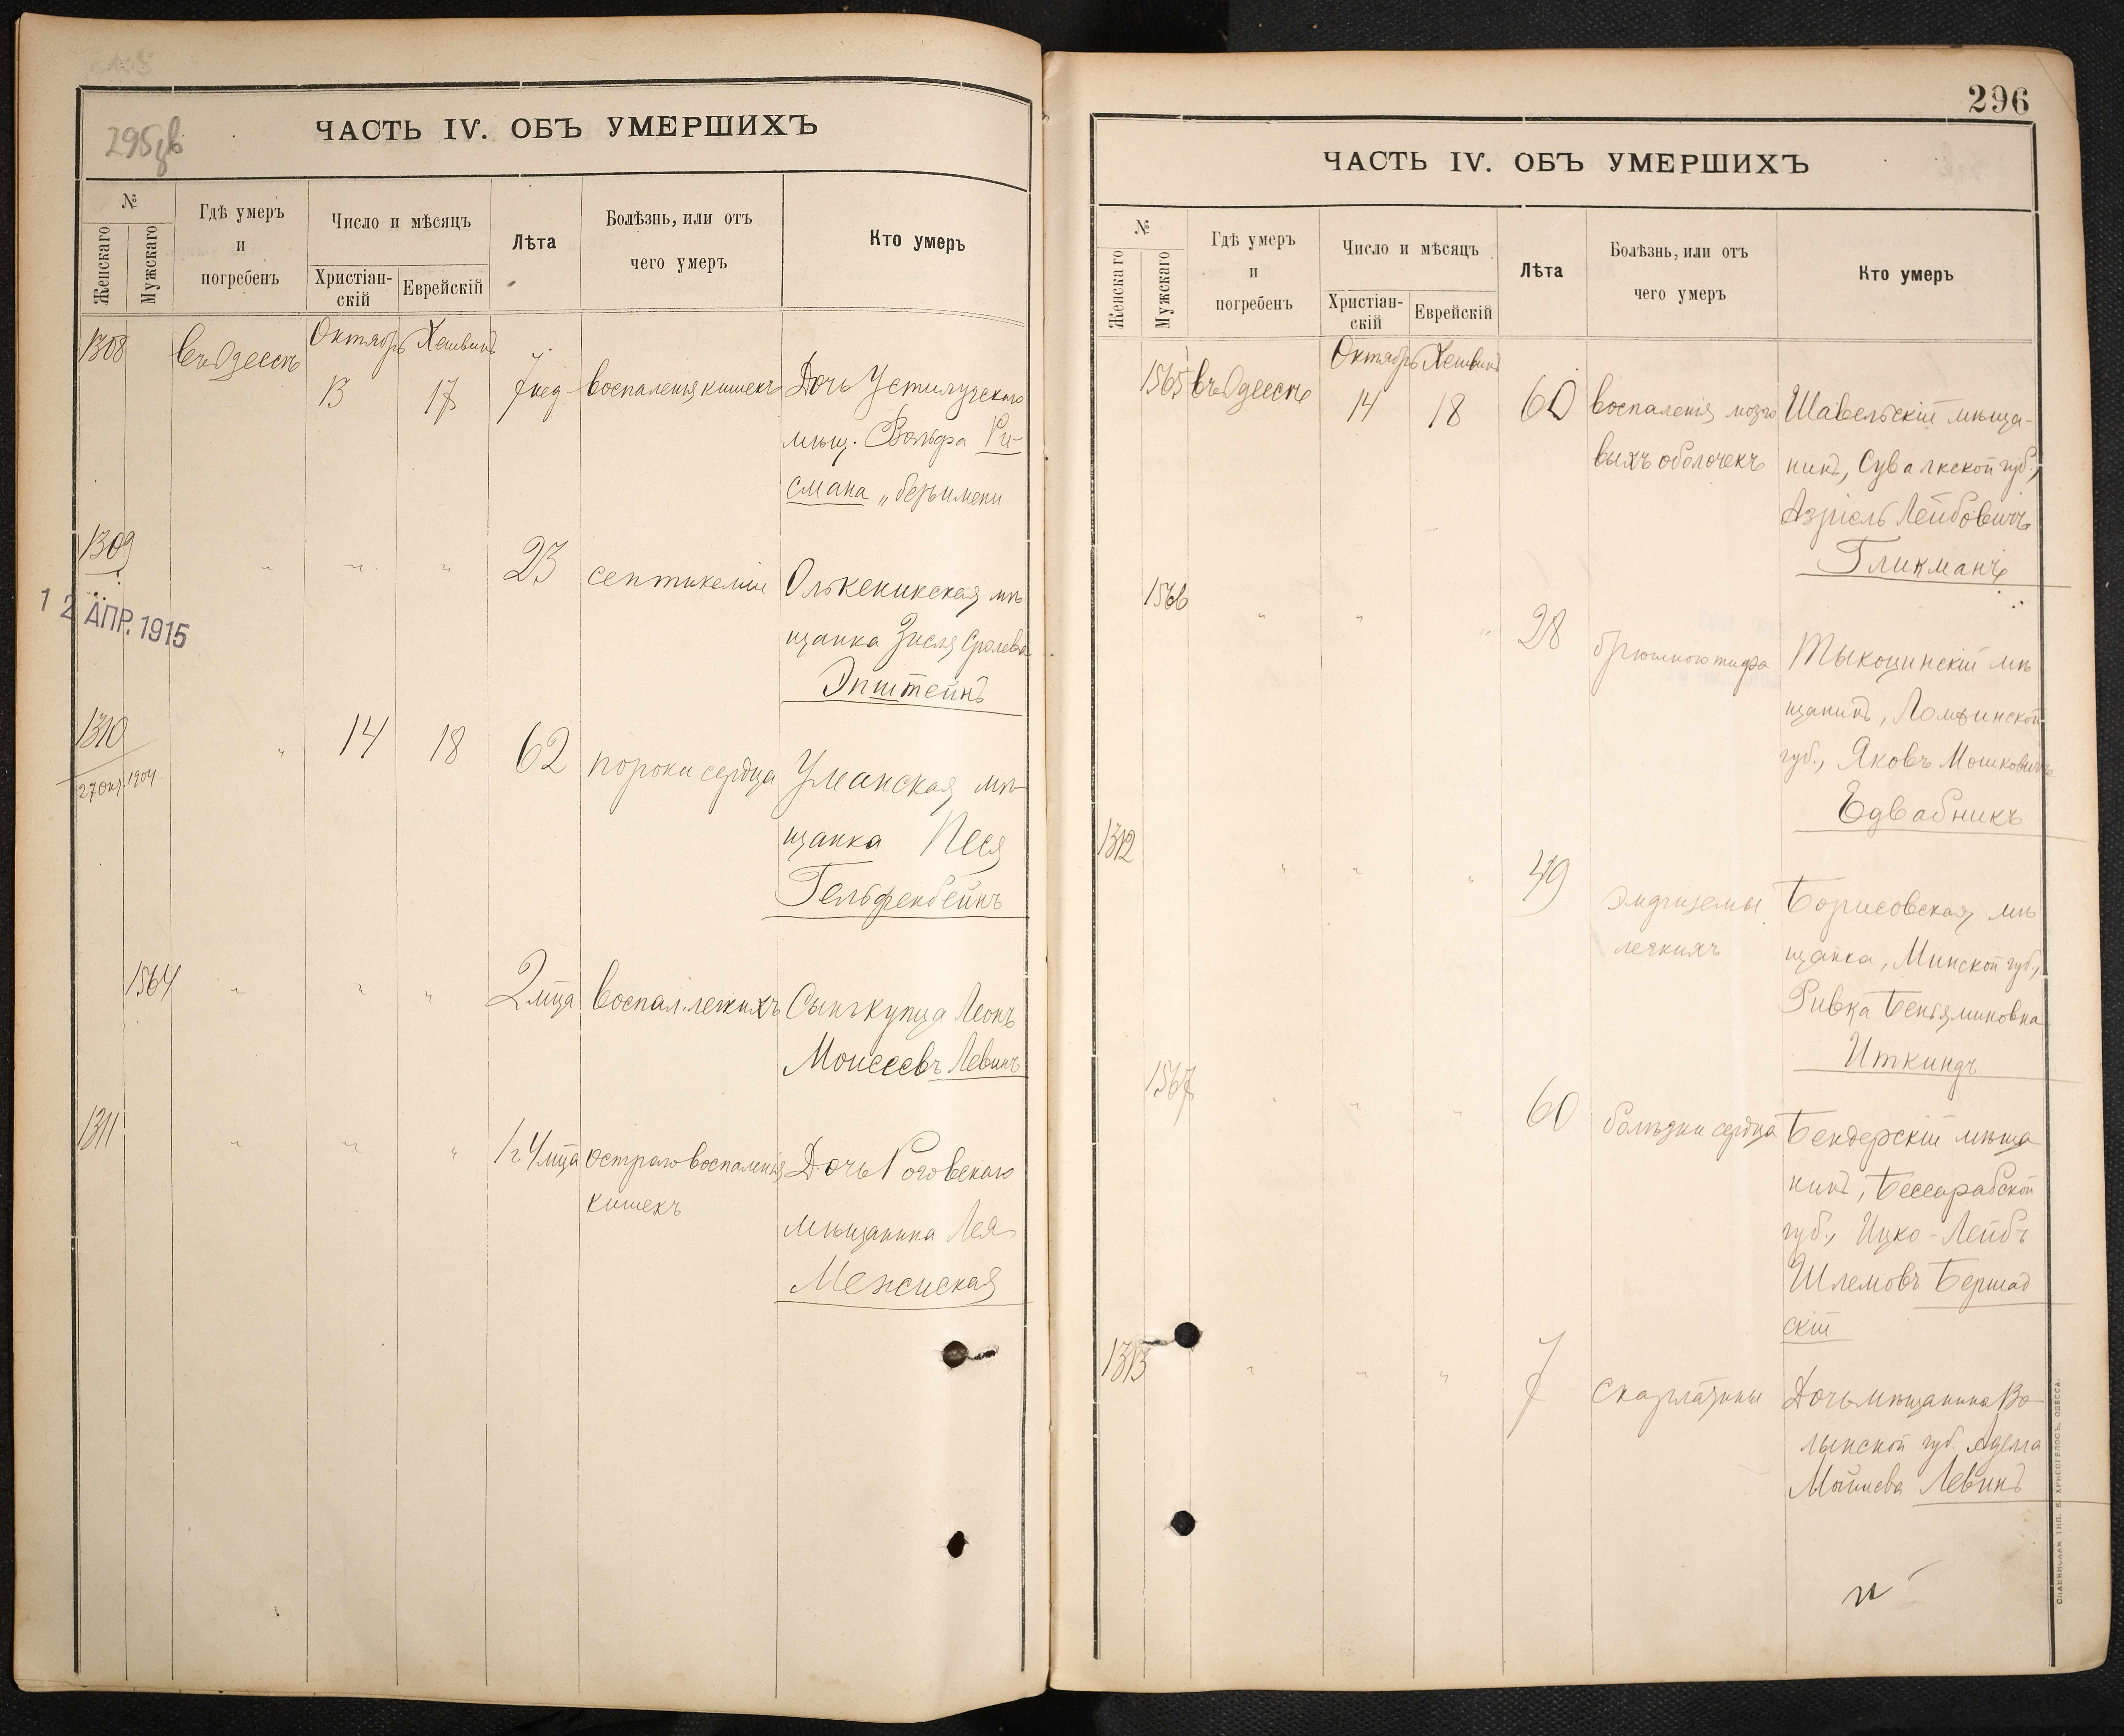 ЧАСТЬ IV. ОБЪ УМЕРШИХЪ
№
Женскаго
Мужскаго
Гдѣ умеръ
и
погребенъ
Число и мѣсяцъ
Христіан-
скій
Еврейскій
Лѣта
Болѣзнь, или отъ
чего умеръ
Кто умеръ
1308
въ Одессѣ
Октябрь Хешвинъ
13 17
7 нед
воспаленія кишекъ
Дочь Устилугскаго
мѣщ. Вольфа Ри-
смана „безъ имени
1309
" " "
23
септикеміи
Олькеникская мѣ
щанка Зисля Сролева
Эпштейнъ
1 2 АПР. 1915
1310
27 окт. 1904
"
14 18
62
пороки сердца
Уманская мѣ-
щанка Песя
Гельфенбейнъ
1564
" " "
2 м‑ца
воспал. легкихъ
Сынъ купца Леонъ
Моисеевъ Левинъ
1311
" " "
1 г 4 м‑ца
остраго воспаленія
кишекъ
Дочь Роговскаго
мѣщанина Лея
Менсиская
296
ЧАСТЬ IV. ОБЪ УМЕРШИХЪ
№
Женскаго
Мужскаго
Гдѣ умеръ
и
погребенъ
Число и мѣсяцъ
Христіан-
скій
Еврейскій
Лѣта
Болѣзнь, или отъ
чего умеръ
Кто умеръ
1565
въ Одессѣ
Октябрь Хешвинъ
14 18
60
воспаленія мозго
выхъ оболочекъ
Шавельскій мѣща-
нинъ, Сувалкской губ.,
Азріель Лейбовичъ
Гликманъ
1566
" " "
28
брюшного тифа
Тыкоцинскій мѣ
щанинъ, Ломжинской
губ., Яковъ Мошковичъ
Едвабникъ
1312
" " "
49
эмфиземы
легкихъ
Борисовская мѣ
щанка, Минской губ.,
Ривка Беньяминовна
Иткиндъ
1567
" " "
60
болѣзни сердца
Бендерскій мѣща
нинъ, Бессарабской
губ., Ицко-Лейбъ
Шлемовъ Бершад
скій
1313
" " "
7
скарлатины
Дочь мѣщанина Во
лынской губ. Аделла
Левинъ
СЛАВЯНСКАЯ ТИП. Е. ХРИСОГЕЛОСЪ, ОДЕССА.